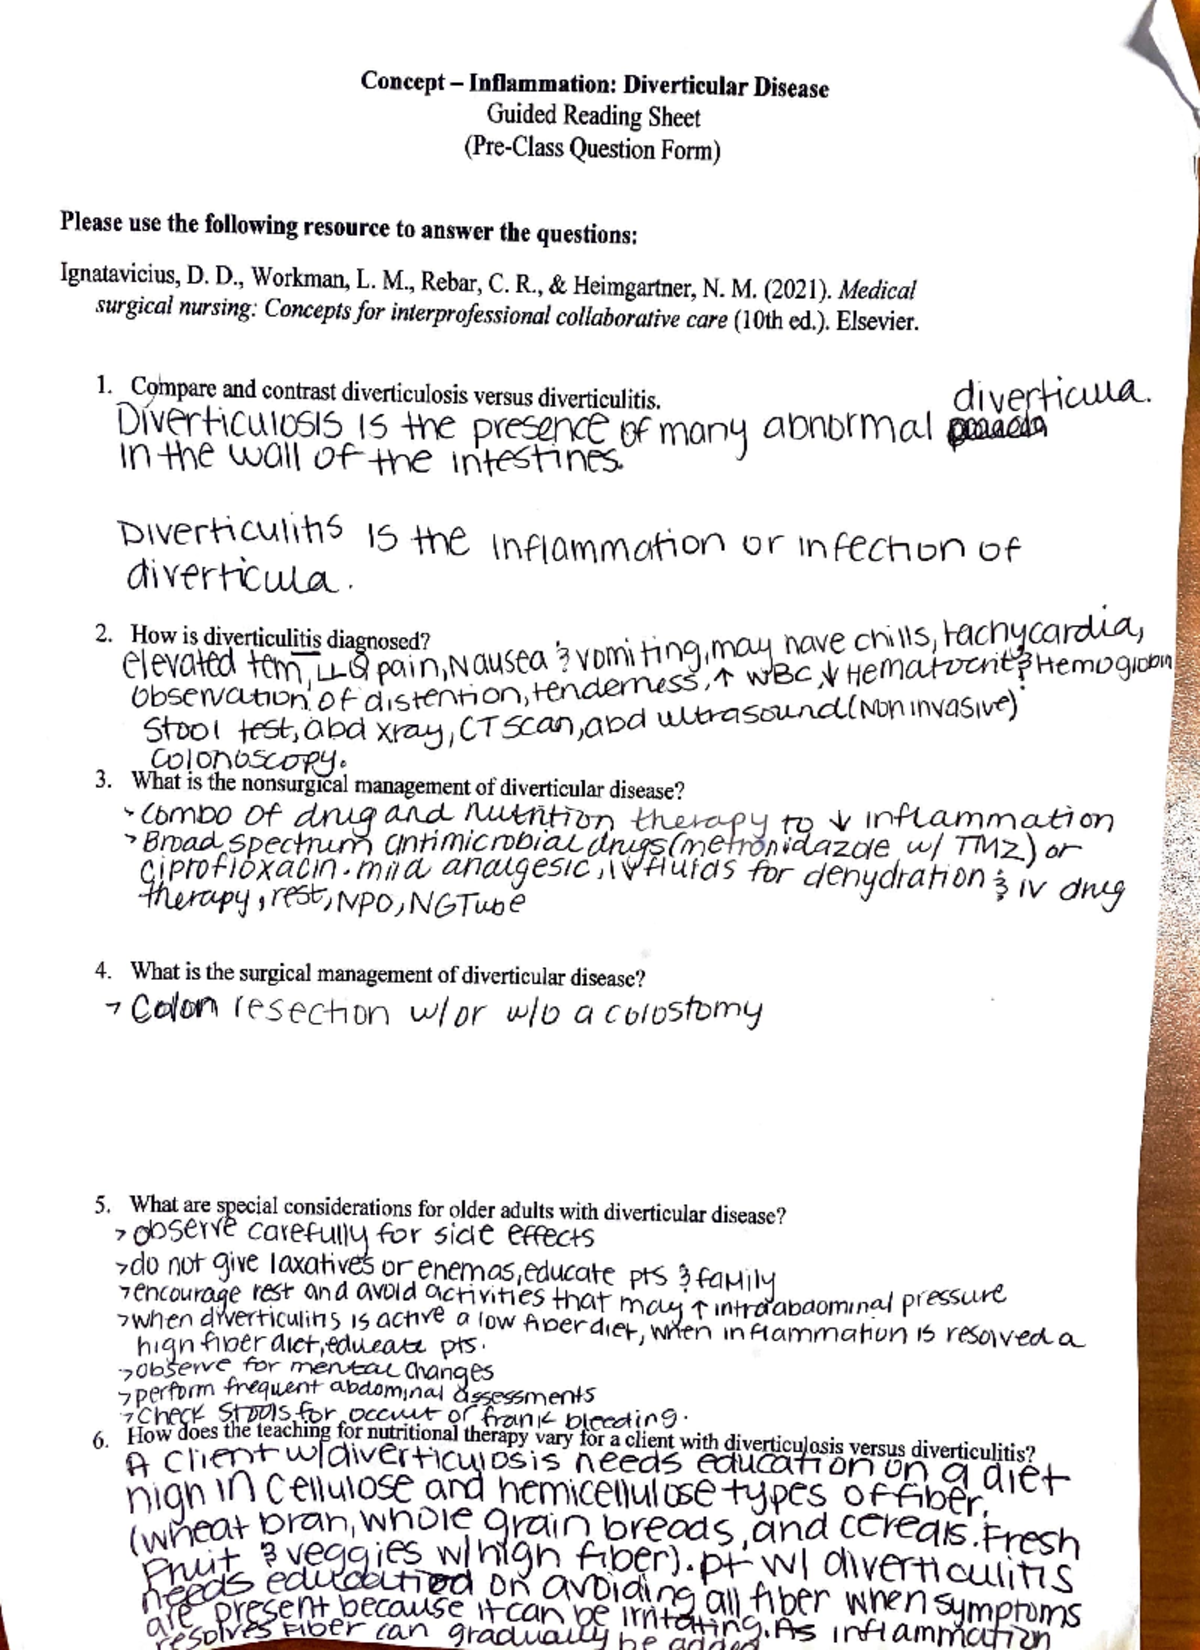 Concept – Inflammation: Diverticular Disease
Guided Reading Sheet
(Pre-Class Question Form)
Please use the following resource to answer the questions:
Ignatavicius, D. D., Workman, L. M., Rebar, C. R., & Heimgartner, N. M. (2021). Medical
surgical nursing: Concepts for interprofessional collaborative care (10th ed.). Elsevier.
1. Compare and contrast diverticulosis versus diverticulitis.
Diverticulosis is the presence of many abnormal diverticula.
in the wall of the intestines.
Diverticulitis is the inflammation or infection of
diverticula.
2. How is diverticulitis diagnosed?
elevated tem, LLQ pain, Nausea & vomiting, may have chills, tachycardia,
Observation of distention, tenderness, ↑ WBC, ↓ Hematocrit & Hemoglobin
Stool test, abd xray, CT scan, abd ultrasound (Non invasive)
Colonoscopy.
3. What is the nonsurgical management of diverticular disease?
- Combo of drug and nutrition therapy to ↓ inflammation
> Broad spectrum antimicrobial drugs (metronidazole w/ TMZ) or
ciprofloxacin. mild analgesic, IV fluids for dehydration & IV drug
therapy, rest, NPO, NG Tube
4. What is the surgical management of diverticular disease?
> Colon resection w/or w/o a colostomy
5. What are special considerations for older adults with diverticular disease?
> observe carefully for side effects
> do not give laxatives or enemas, educate pts & family
> encourage rest and avoid activities that may ↑ intraabdominal pressure
> when diverticulitis is active a low fiber diet, when inflammation is resolved a
high fiber diet, educate pts.
> observe for mental changes
> perform frequent abdominal assessments
> Check Stools for occult or frank bleeding.
6. How does the teaching for nutritional therapy vary for a client with diverticulosis versus diverticulitis?
A client w/diverticulosis needs education on a diet
high in cellulose and hemicellulose types of fiber.
(wheat bran, whole grain breads, and cereals. Fresh
Fruit & veggies w/high fiber). pt w/ diverticulitis
needs on avoiding all fiber when symptoms
are present because it can be irritating. As inflammation
resolves fiber can gradually be added